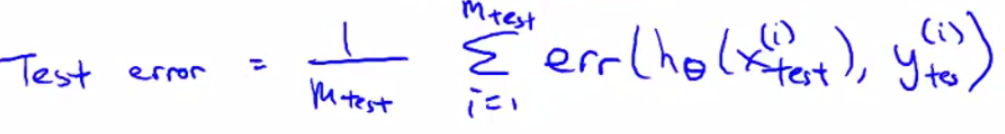 Test error = \frac{1}{m_{test}} \sum_{i=1}^{m_{test}} err(h_\theta(x_{test}^{(i)}), y_{tes}^{(i)})